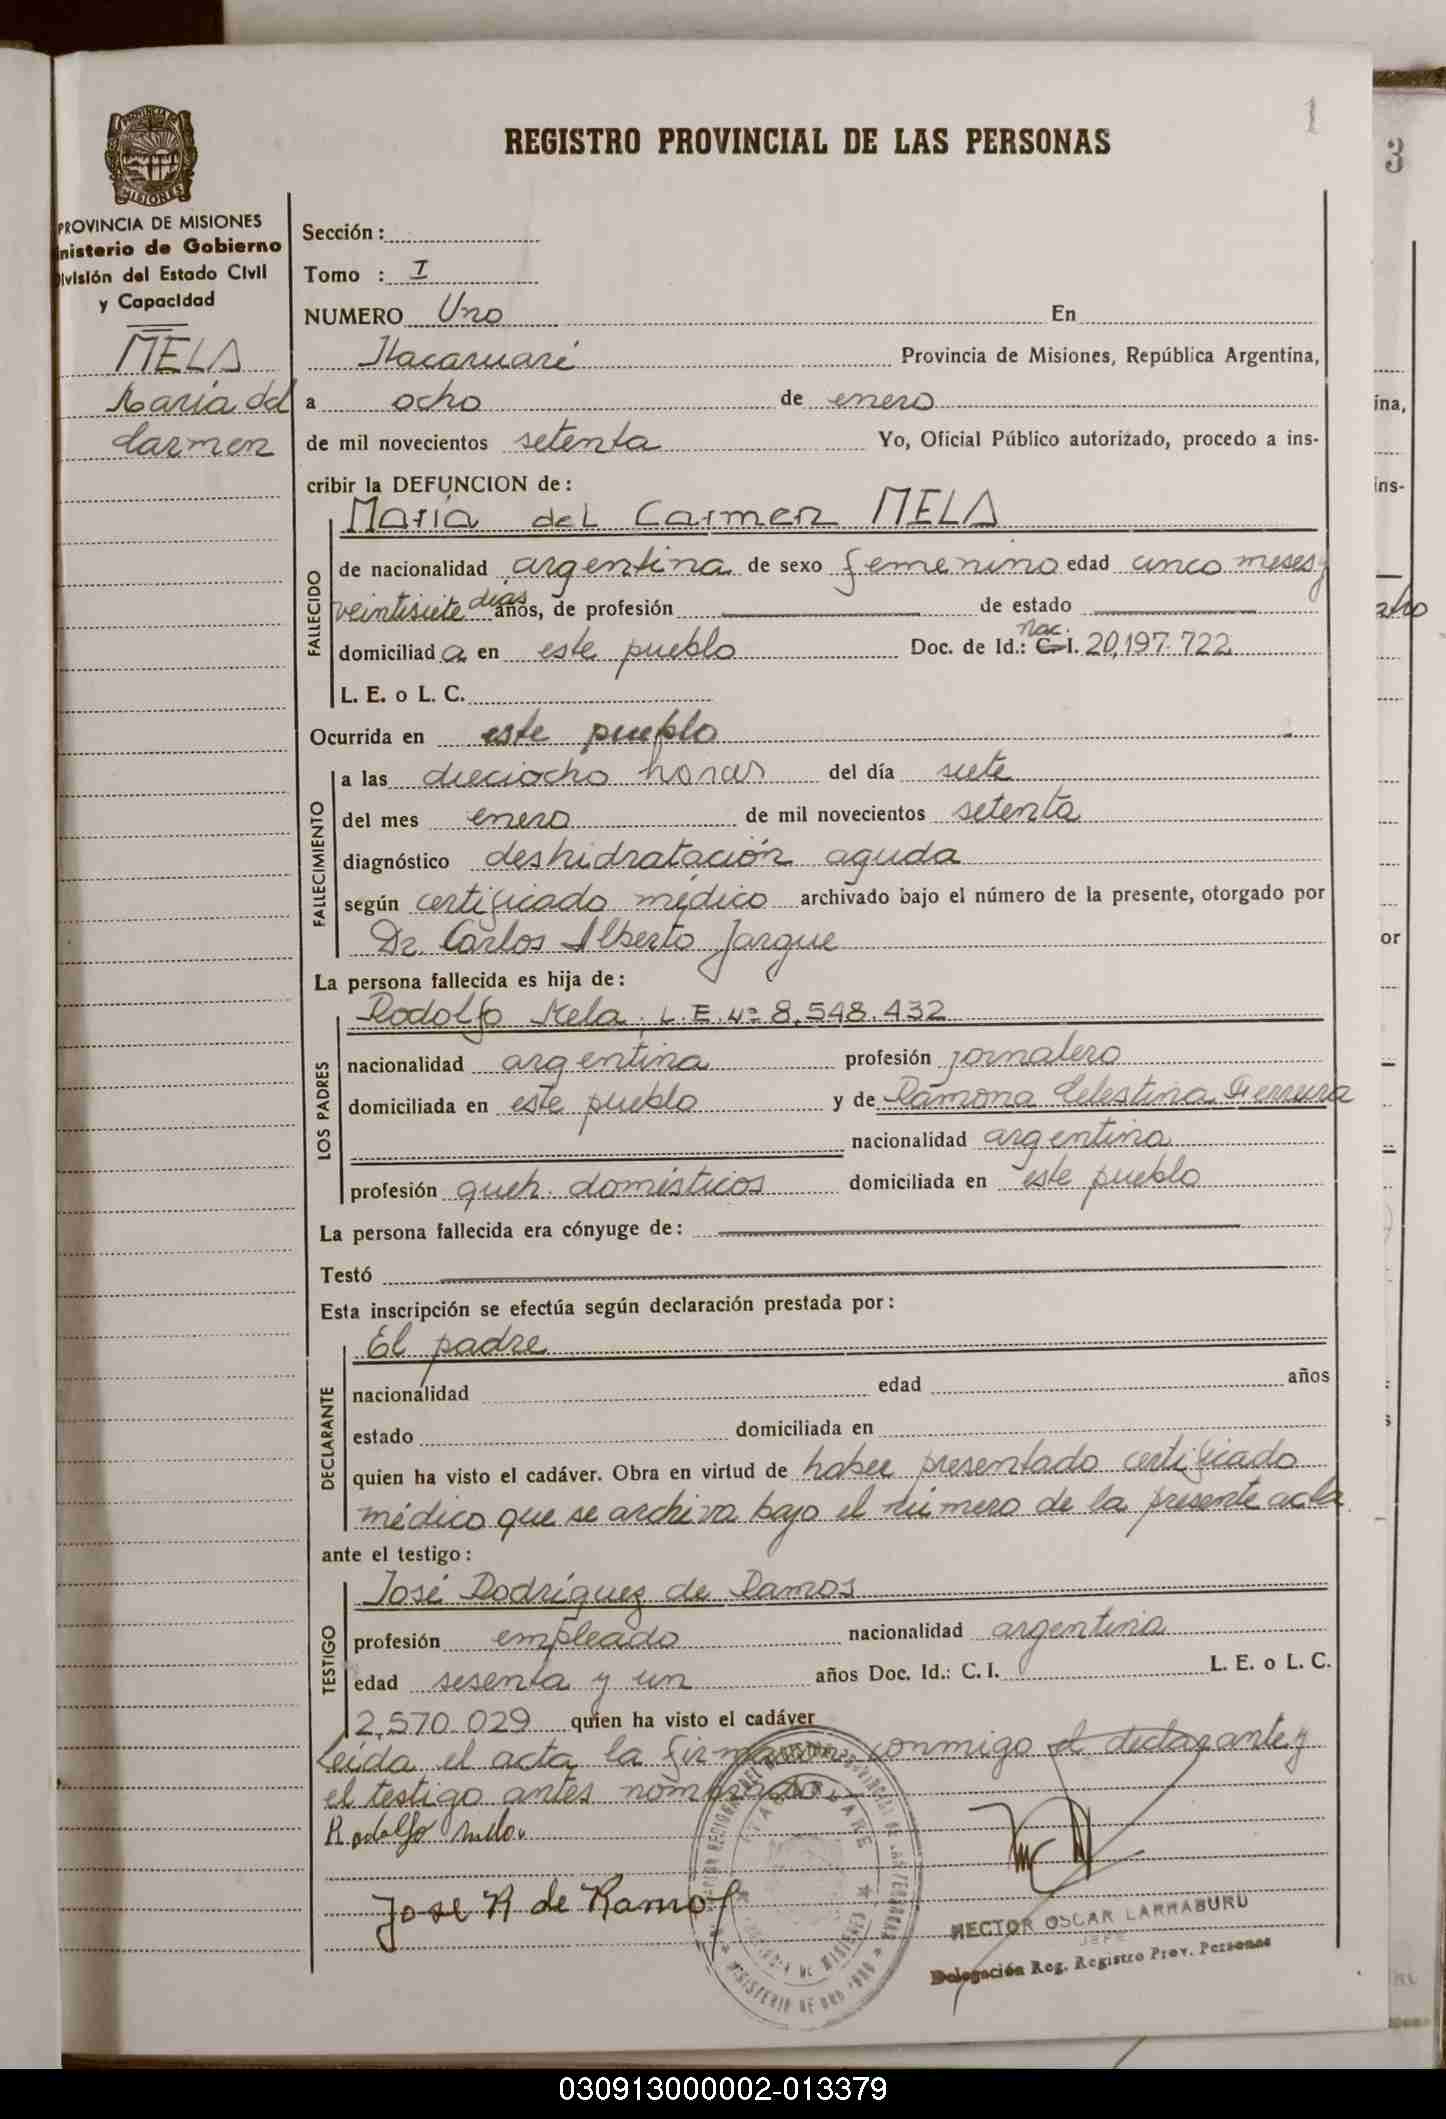 1
REGISTRO PROVINCIAL DE LAS PERSONAS
3
MISIONES
PROVINCIA DE MISIONES
nisterio de Gobierno
ivisión del Estado Civil
y Capacidad
MELA
María del
Carmen
Sección :
Tomo : I
NUMERO Uno En
Itacaruaré Provincia de Misiones, República Argentina,
a ocho de enero
de mil novecientos setenta Yo, Oficial Público autorizado, procedo a ins-
cribir la DEFUNCION de :
María del Carmen MELA
FALLECIDO
de nacionalidad argentina de sexo femenino edad cinco meses y
veintisiete días años, de profesión de estado
domiciliada en este pueblo Doc. de Id.: C. I. nac. 20,197.722
L. E. o L. C.
Ocurrida en este pueblo
FALLECIMIENTO
a las dieciocho horas del día siete
del mes enero de mil novecientos setenta
diagnóstico deshidratación aguda
según certificado médico archivado bajo el número de la presente, otorgado por
Dr. Carlos Alberto Jarque
La persona fallecida es hija de :
LOS PADRES
Rodolfo Mela, L.E.Nº 8.548.432
nacionalidad argentina profesión jornalero
domiciliada en este pueblo y de Ramona Celestina Ferreira
nacionalidad argentina
profesión queh. domésticos domiciliada en este pueblo
La persona fallecida era cónyuge de :
Testó
Esta inscripción se efectúa según declaración prestada por :
DECLARANTE
El padre
nacionalidad edad años
estado domiciliada en
quien ha visto el cadáver. Obra en virtud de haber presentado certificado
médico que se archiva bajo el número de la presente acta
ante el testigo :
TESTIGO
José Rodríguez de Ramos
profesión empleado nacionalidad argentina
edad sesenta y un años Doc. Id.: C. I. L. E. o L. C.
2,570.029 quien ha visto el cadáver
Leída el acta la firmaron conmigo el declarante y
el testigo antes nombrado.
Rodolfo
José R de Ramos
HECTOR OSCAR LARRABURU
JEFE
Delegación Reg. Registro Prov. Personas
ina,
ins-
or
030913000002-013379